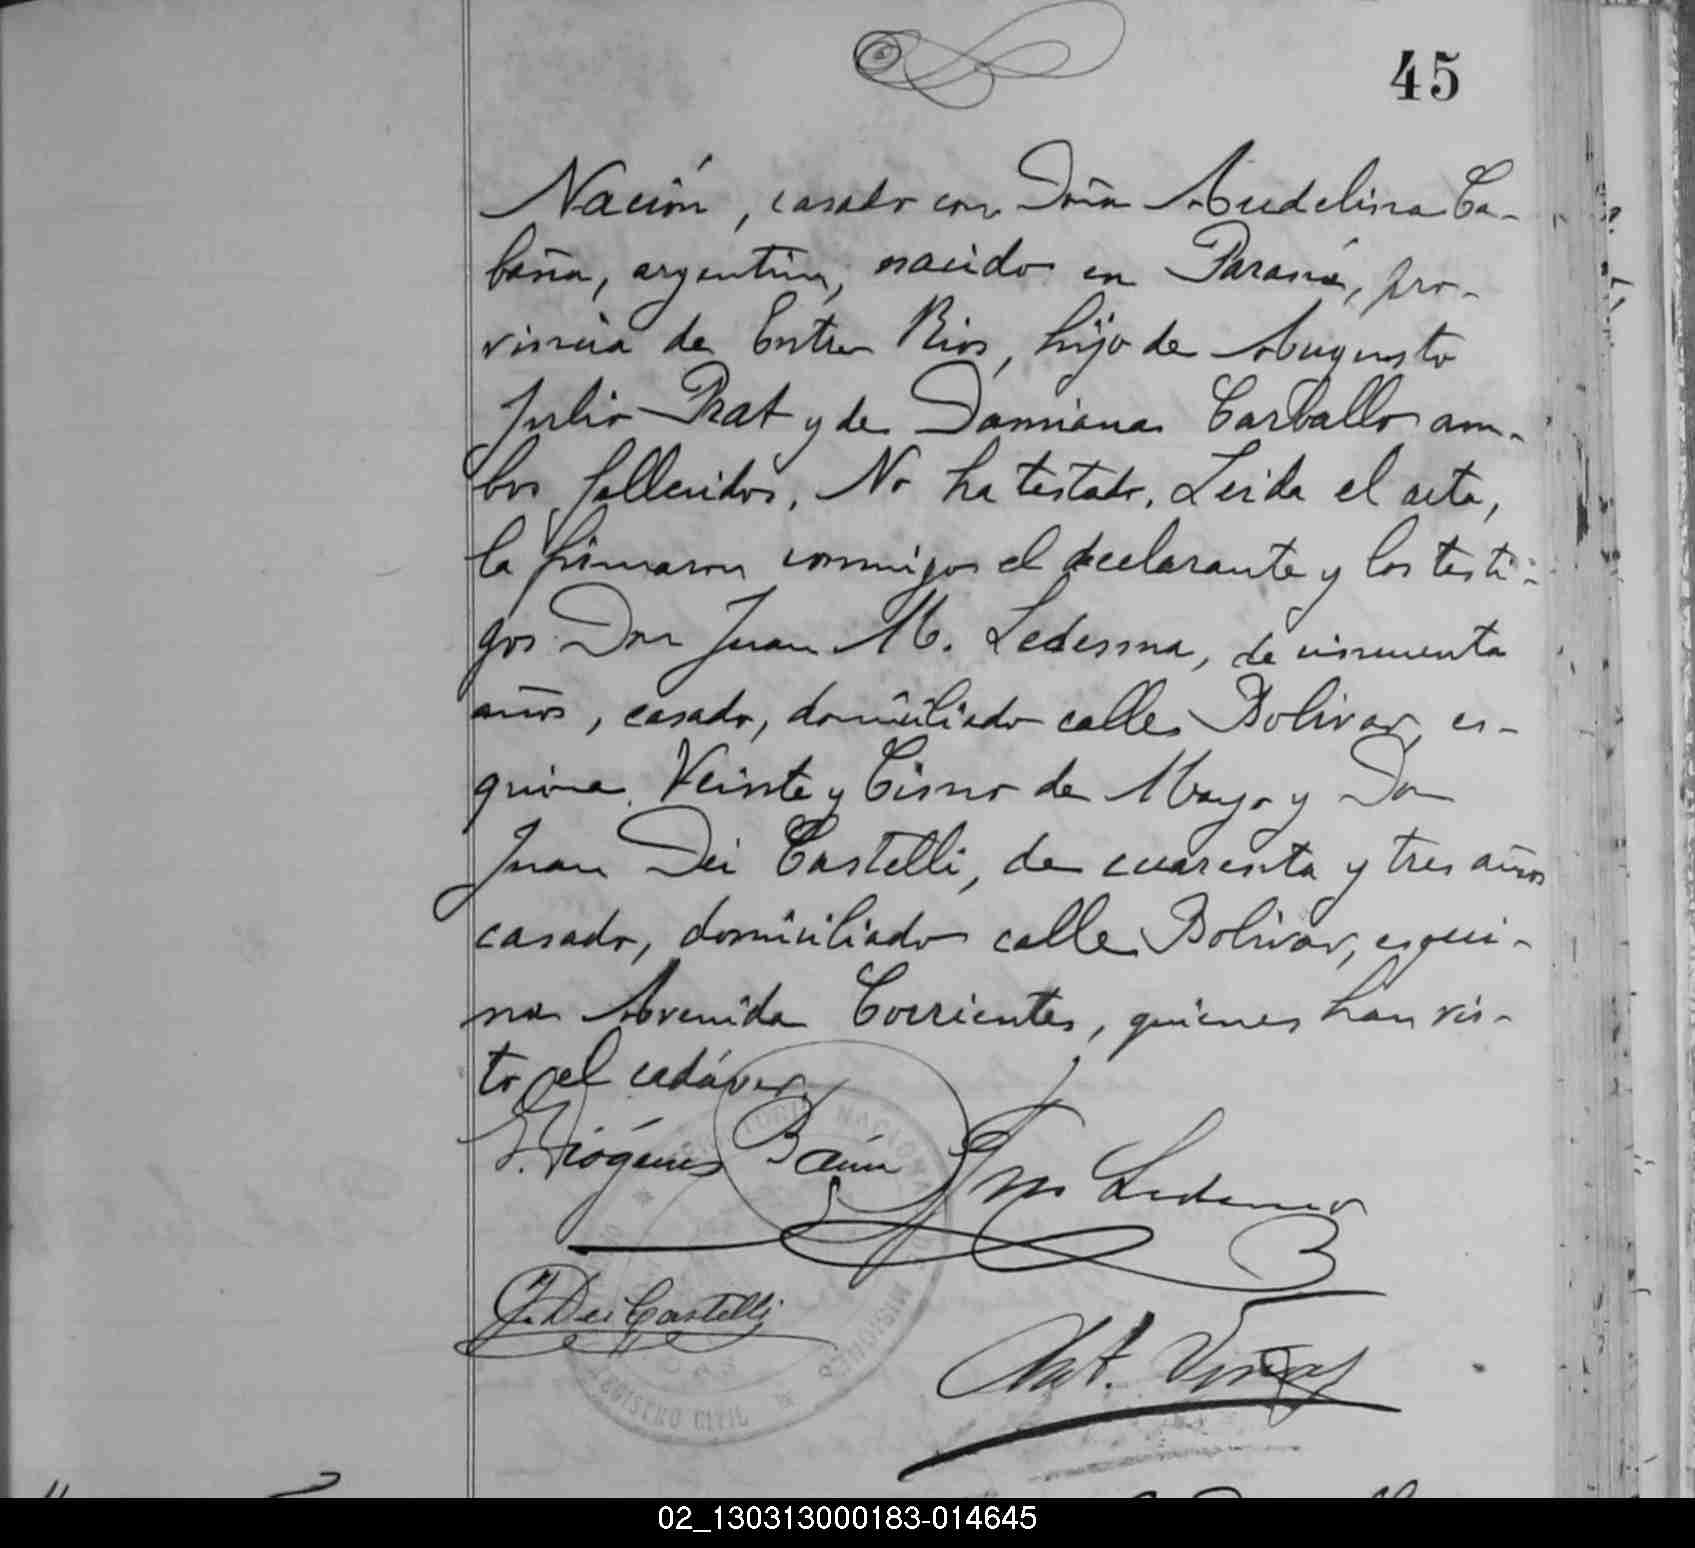 45
Nación, casado con Doña Audelina Ca-
baña, argentino, nacido en Paraná, pro-
vincia de Entre Rios, hijo de Augusto
Julio Prat y de Damiana Carballo am-
bos fallecidos. No ha testado. Leida el acta,
la firmaron conmigo el declarante y los testi-
gos Don Juan M. Ledesma, de cincuenta
años, casado, domiciliado calle Bolivar, es-
quina Veinte y Cinco de Mayo y Don
Juan Dei Castelli, de cuarenta y tres años
casado, domiciliado calle Bolivar, esqui-
na Avenida Corrientes, quienes han vis-
to el cadáver.
Diógenes Ledesma
J. Dei Castelli
Ant.
NACIONAL
MISIONES
REGISTRO CIVIL
02_130313000183-014645